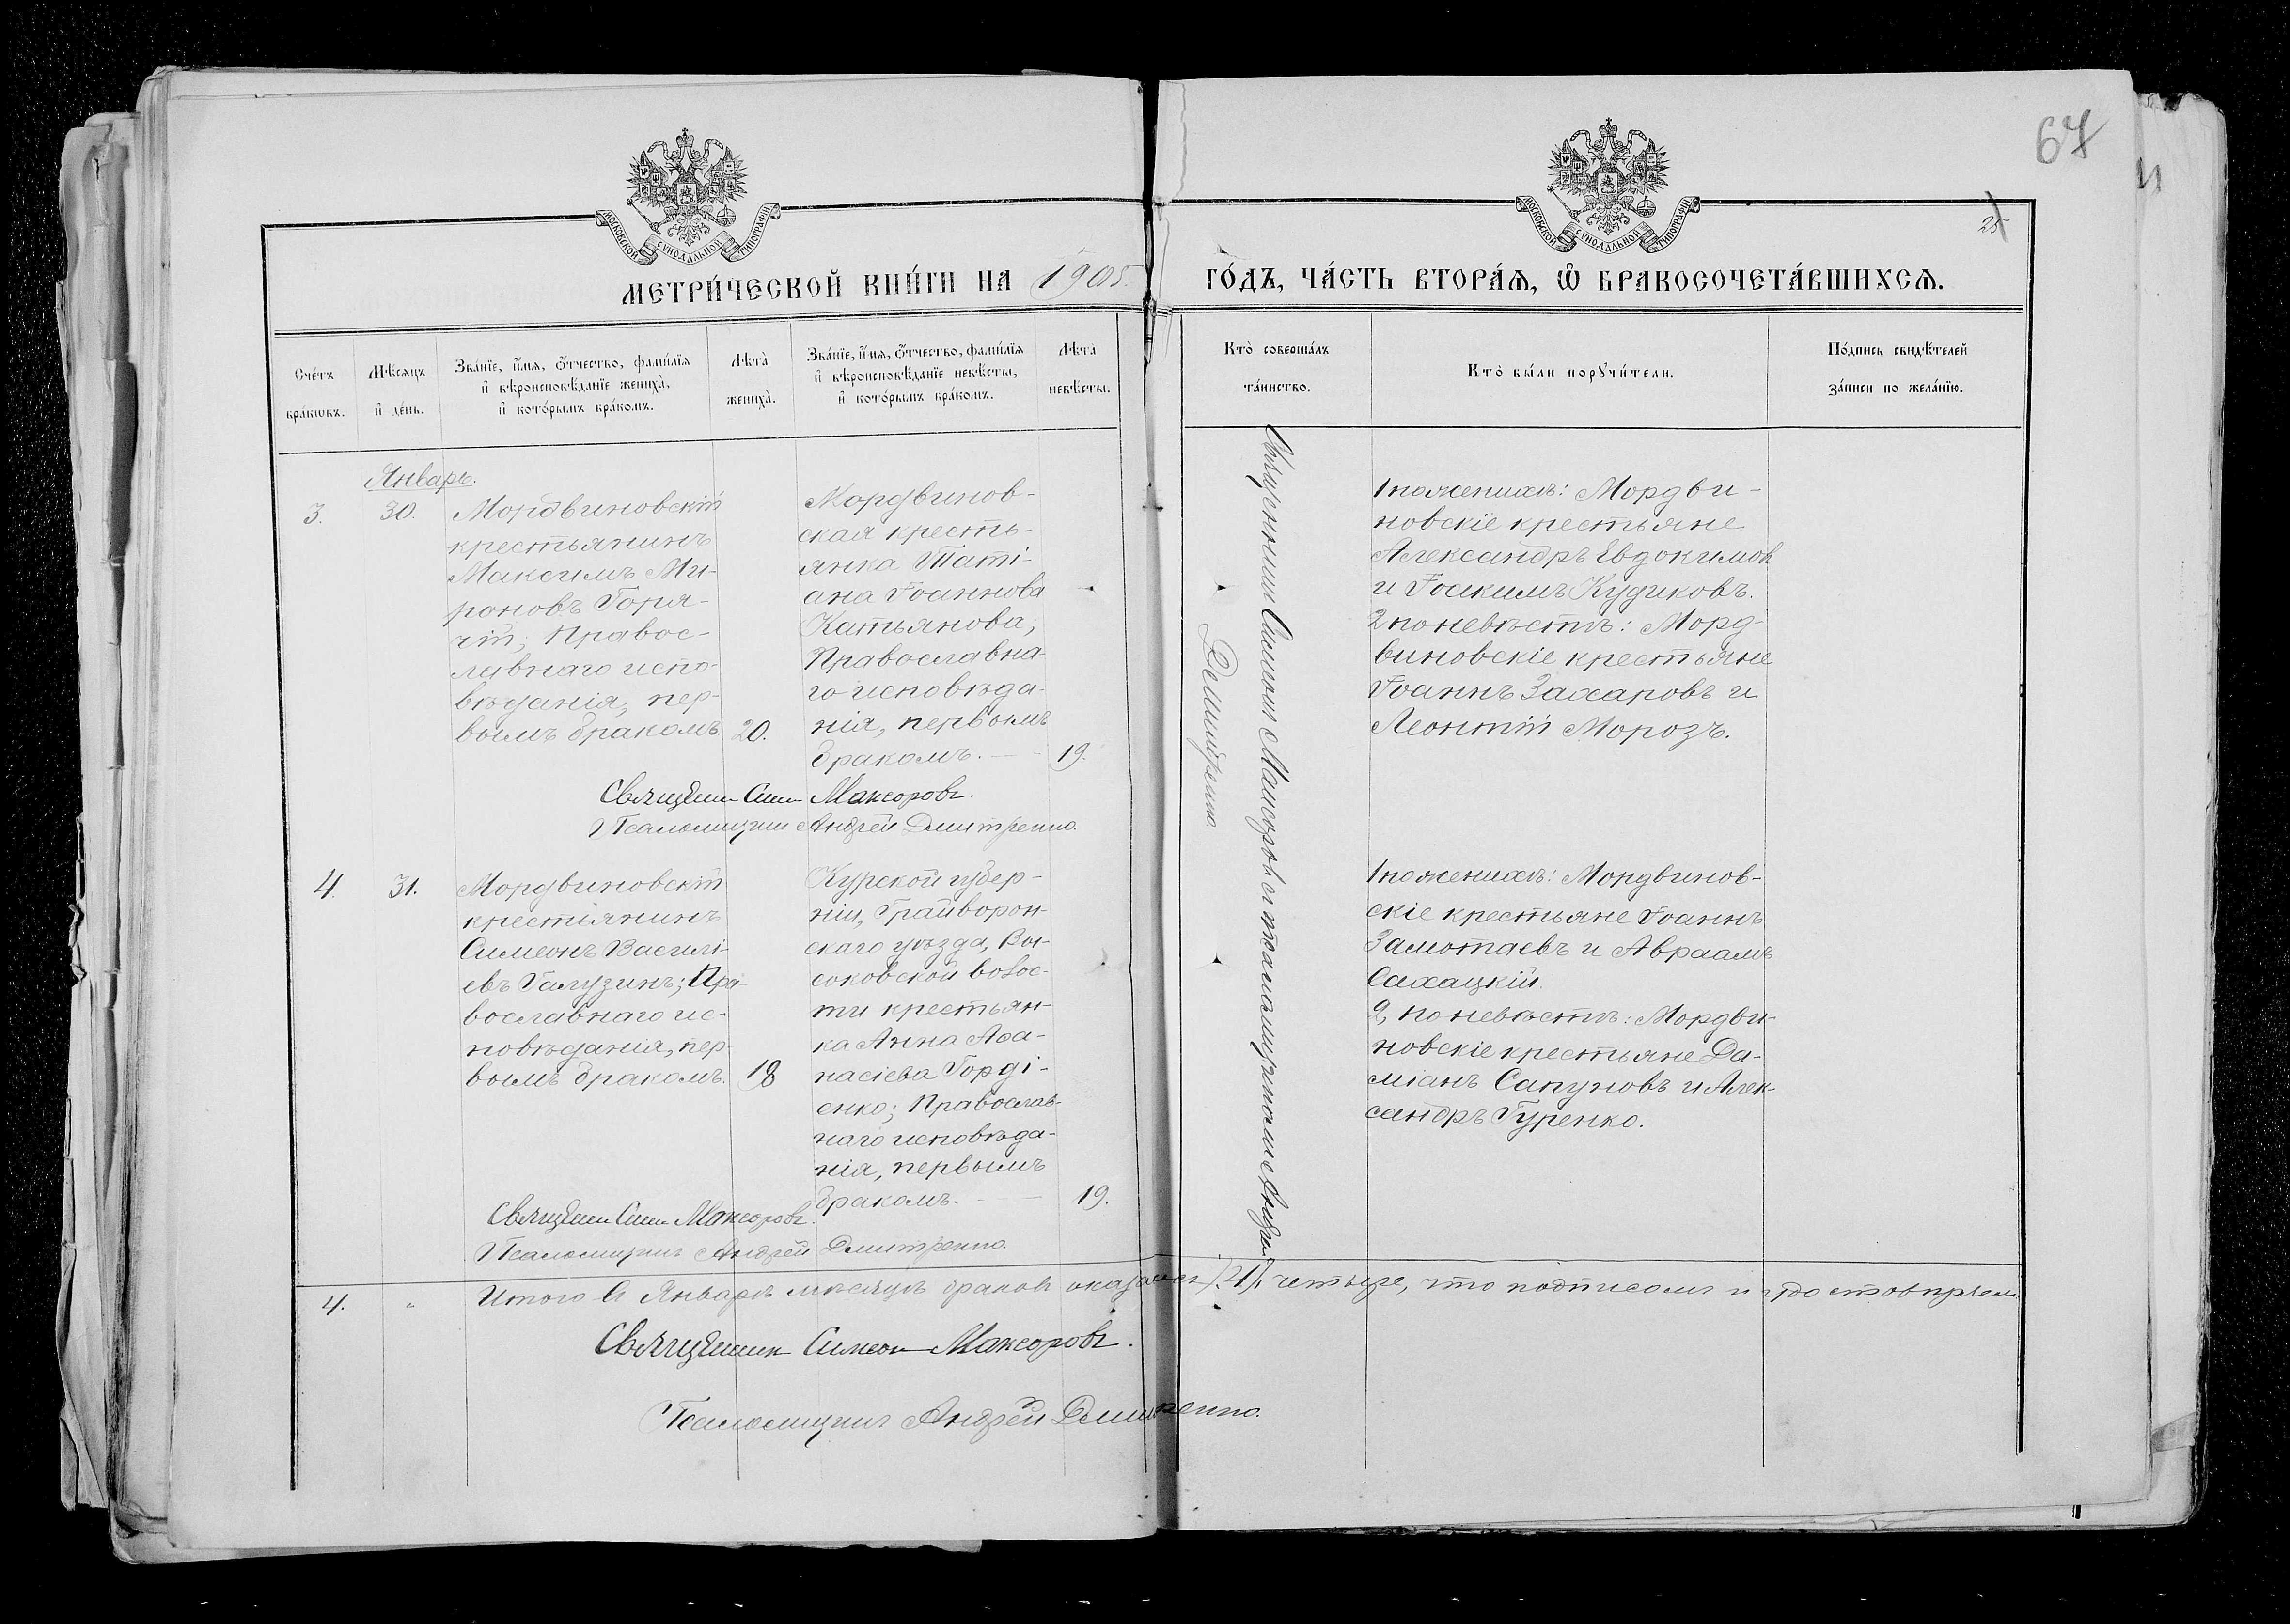 67
25
МОСКОВСКОЙ СУНОДАЛЬНОЙ ТИПОГРАФІИ
МОСКОВСКОЙ СУНОДАЛЬНОЙ ТИПОГРАФІИ
МЕТРИ́ЧЕСКОЙ КНИ́ГИ НА 1905. ГО́ДЪ, ЧА́СТЬ ВТОРА́Ѧ, Ѽ БРАКОСОЧЕТА́ВШИХСѦ.
Сче́тъ
бра́кѡвъ.
Мѣ́сяцъ
и҆ де́нь.
Зва́нїе, и҆́мя, ѻ҆́тчество, фами́лїя
и҆ вѣроисповѣ́данїе жениха̀,
и҆ кото́рымъ бра́комъ.
Лѣта̀
жениха̀.
Зва́нїе, и҆́мя, ѻ҆́тчество, фами́лїя
и҆ вѣроисповѣ́данїе невѣ́сты,
и҆ кото́рымъ бра́комъ.
Лѣта̀
невѣ́сты.
Кто̀ соверша́лъ
та́инство.
Кто̀ бы́ли порꙋчи́тели.
По́дпись свидѣ́телей
за́писи по жела́нїю.
Январь.
3.
30.
Мордвиновскій
крестьянинъ
Максимъ Ми-
роновъ Горя-
чій; Правос-
лавнаго испо-
вѣданія, пер-
вымъ бракомъ.
20.
Мордвинов-
ская кресть-
янка Таті-
ана Іоаннова
Катьянова;
Православна-
го исповѣда-
нія, первымъ
бракомъ. —
19.
Священникъ Симеонъ Максоровъ и псаломщикомъ Андреемъ
Дмитренко
1 по женихѣ: Мордви-
новскіе крестьяне
Александръ Евдокимовъ
и Іоакимъ Кудиковъ.
2 по невѣстѣ: Морд-
виновскіе крестьяне
Іоаннъ Захаровъ и
Леонтій Морозъ.
Священ. Сим. Максоровъ.
Псаломщикъ Андрей Дмитренко.
4.
31.
Мордвиновскій
крестьянинъ
Симеонъ Василі-
евъ Галузинъ; Пра-
вославнаго ис-
повѣданія, пер-
вымъ бракомъ.
18
Курской губер-
ніи, Грайворон-
скаго уѣзда, Вы-
соковской волос-
ти крестьян-
ка Анна Аѳа-
насіева Горді-
енко; Православ-
наго исповѣда-
нія, первымъ
бракомъ. —
19.
1 по женихѣ: Мордвинов-
скіе крестьяне Іоаннъ
Замотаевъ и Авраамъ
Сахацкій.
2, по невѣстѣ: Мордви-
новскіе крестьяне Да-
міанъ Сапуновъ и Алек-
сандръ Гуренко.
Священ. Сим. Максоровъ.
Псаломщикъ Андрей Дмитренко.
4.
Итого въ Январѣ мѣсяцѣ браковъ оказалось /4/ четыре, что подписомъ и удостовѣряемъ
Священникъ Симеонъ Максоровъ.
Псаломщикъ Андрей Дмитренко.